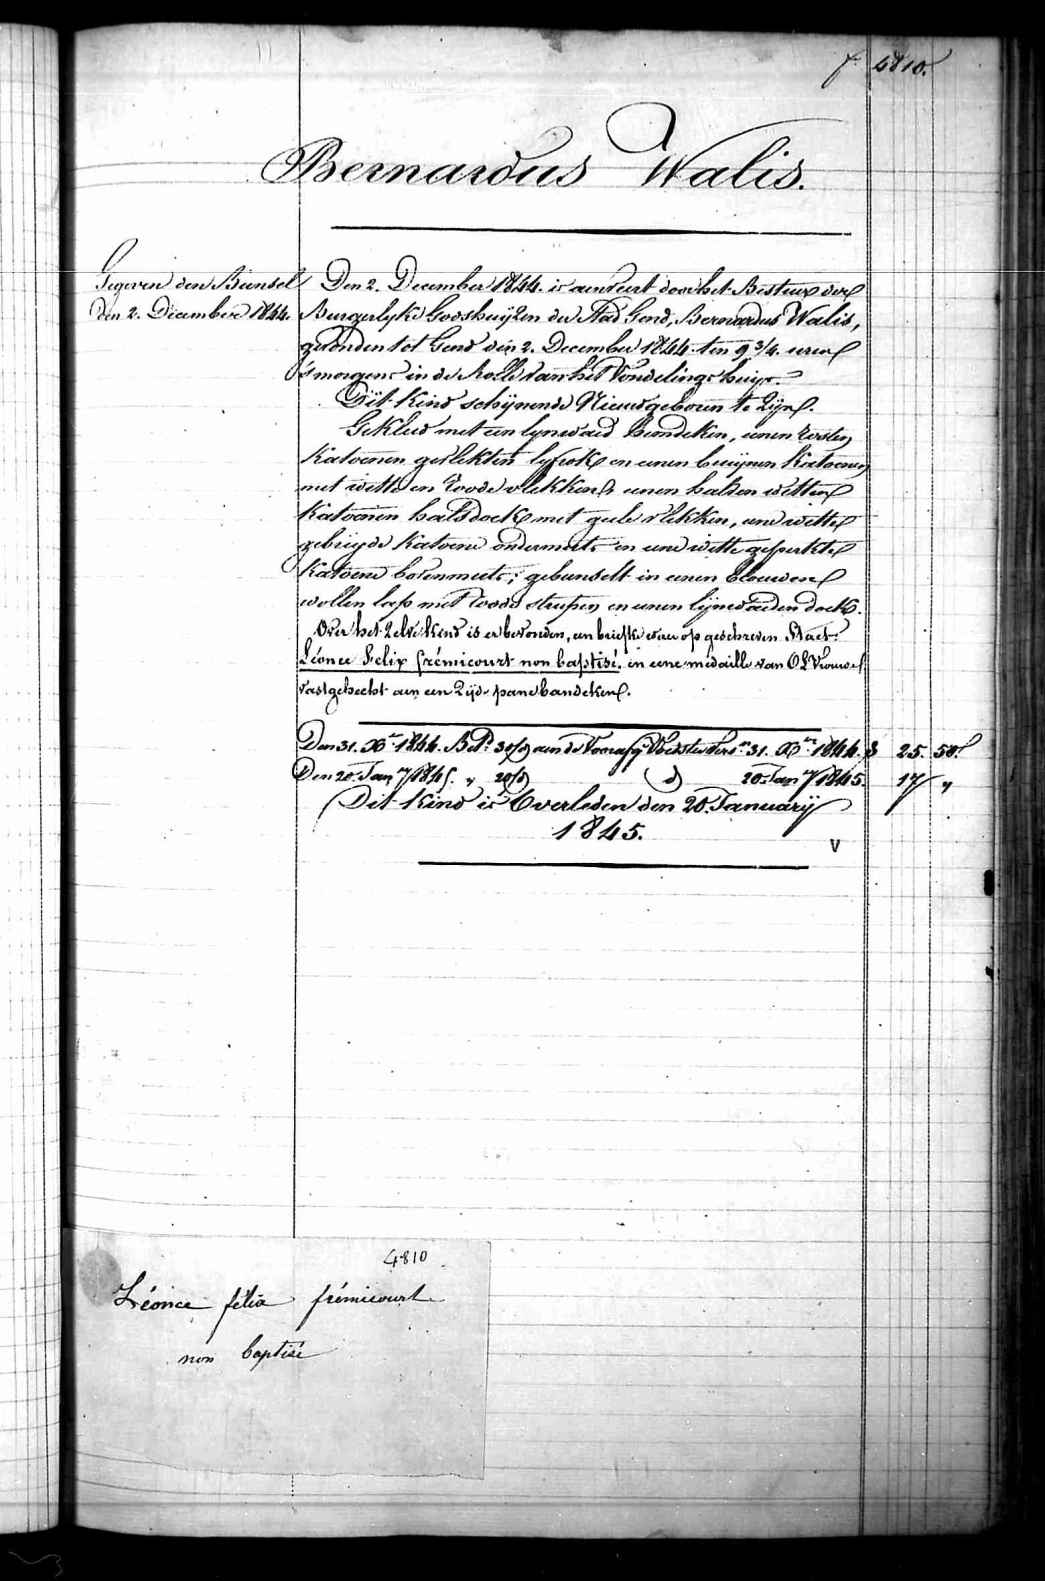 f 4810.
Bernardus Walis.
Gegeven den Bunsel
den 2. December 1844.
Den 2. December 1844. is aenveirt door het Bestier der
Burgerlyke Godshuijzen der Stad Gend, Bernardus Walis,
gevonden tot Gend den 2. December 1844. ten 9 3/4. uren
s'morgens in de Rolle van het Vondelingshuijs.
Dit kind schijnende Nieuwgeboren te Zijn.
Gekleed met een lynwaed hemdeken, eenen
Katoenen gevlekten lyfrok en eenen bruynen Katoenen
met witte en roode vlekken, eenen witten
Katoenen halsdoek met geele vlekken, eene witte
gebreyde Katoene ondermuts en eene witte geperkte
Katoene bovenmuts; gebunselt in eenen blouwen
wollen lap met roode strepen en eenen lijnwaeden doek.
Over het zelve kind is er bevonden, een briefke waer op geschreven Staet:
Léonce Félix frémicourt non baptisé. en eene médaille van O L Vrouwe
vastgehecht aen een Zijd pane bandeken.
Den 31. Xber 1844. Bet. 31/ aen de Voedster 31. Xber 1844. 3 25. 50
Den 20. Jany 1845. " 20/ d 20. Jany 1845. 17 "
Dit kind is Overleden den 20. Januarij
1845.
V
4810
Léonce félix frémicourt
non baptisé